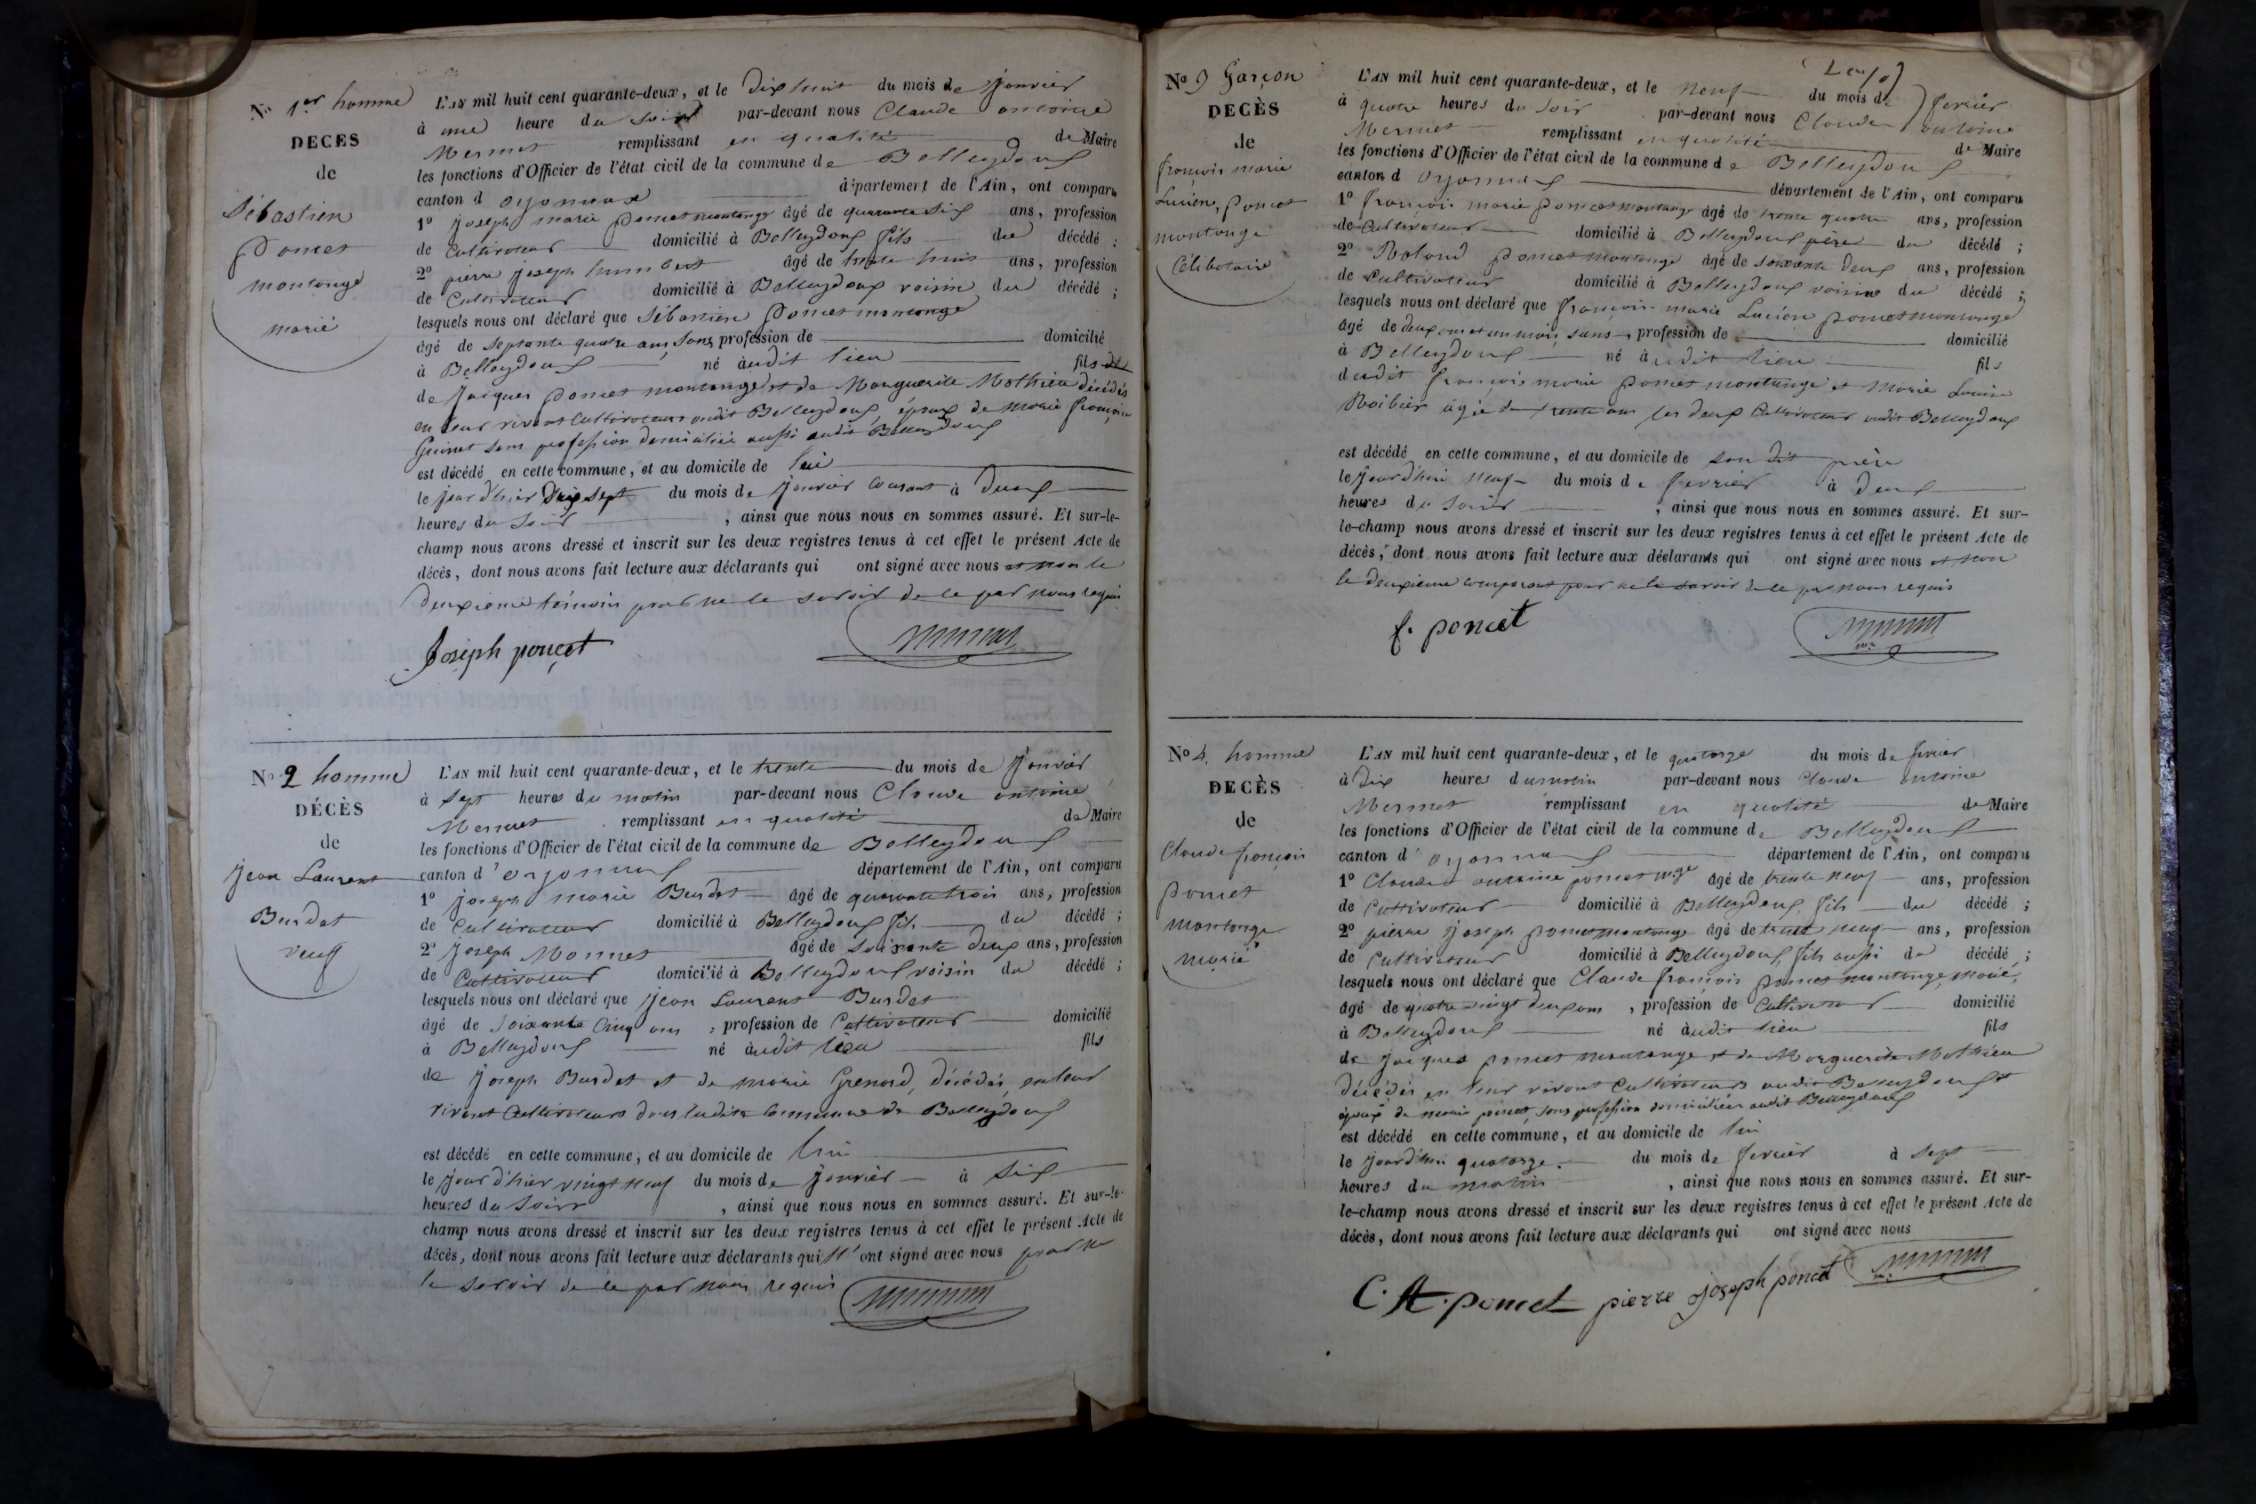 No 1er homme
DÉCÈS
de
Sébastien
Poncet
montange
marié
L'AN mil huit cent quarante-deux, et le Dix huit du mois de Janvier
à une heure du soir par-devant nous Claude antoine
Mermet remplissant en qualité de Maire
les fonctions d'Officier de l'état civil de la commune de Belleydoux
canton d oyonnax département de l'Ain, ont comparu
1º Joseph marie poncet montange âgé de quarante six ans, profession
de Cultivateur domicilié à Belleydoux fils du décédé ;
2º pierre Joseph humbert âgé de trente huit ans, profession
de Cultivateur domicilié à Belleydoux voisin du décédé ;
lesquels nous ont déclaré que Sébastien Poncet montange
âgé de septante quatre ans, sans profession de domicilié
à Belleydoux né audit lieu fils de
de Jacques poncet montange et de Marguerite Mathieu décédés
en leur vivant Cultivateurs audit Belleydoux, époux de Marie françoise
Guinet sans profession domiciliée aussi audit Belleydoux
est décédé en cette commune, et au domicile de lui
le jour d'hier dix sept du mois de Janvier courant à Deux
heures du soir , ainsi que nous nous en sommes assuré. Et sur-le-
champ nous avons dressé et inscrit sur les deux registres tenus à cet effet le présent Acte de
décès, dont nous avons fait lecture aux déclarants qui ont signé avec nous et non le
deuxieme témoin pour ne le savoir de ce par nous requis
Joseph poncet
No 2 homme
DÉCÈS
de
Jean Laurent
Burdet
veuf
L'AN mil huit cent quarante-deux, et le trente du mois de Janvier
à sept heures du matin par-devant nous Claude antoine
Mermet remplissant en qualité de Maire
les fonctions d'Officier de l'état civil de la commune de Belleydoux
canton d'oyonnax département de l'Ain, ont comparu
1º Joseph marie Burdet âgé de quarante trois ans, profession
de Cultivateur domicilié à Belleydoux fils du décédé ;
2º Joseph Monnet âgé de soixante deux ans, profession
de Cultivateur domicilié à Belleydoux voisin du décédé ;
lesquels nous ont déclaré que Jean Laurent Burdet
âgé de soixante Cinq ans , profession de Cultivateur domicilié
à Belleydoux né audit lieu fils
de Joseph Burdet et de marie Grenard, décédés, en leur
vivant Cultivateurs dans ladite Commune de Belleydoux
est décédé en cette commune, et au domicile de lui
le jour d'hier vingt neuf du mois de Janvier à Six
heures du soir , ainsi que nous nous en sommes assuré. Et sur-le-
champ nous avons dressé et inscrit sur les deux registres tenus à cet effet le présent Acte de
décès, dont nous avons fait lecture aux déclarants qui n'ont signé avec nous pour ne
le savoir de ce par nous requis
No 3 Garçon
DÉCÈS
de
françois marie
Lucien, poncet
montange
Célibataire
L'AN mil huit cent quarante-deux, et le neuf du mois de fevrier
à quatre heures du soir par-devant nous Claude antoine
Mermet remplissant en qualité de Maire
les fonctions d'Officier de l'état civil de la commune de Belleydoux
canton d oyonnax département de l'Ain, ont comparu
1º françois marie poncet montange âgé de trente quatre ans, profession
de Cultivateur domicilié à Belleydoux père du décédé ;
2º Roland poncet montange âgé de soixante deux ans, profession
de Cultivateur domicilié à Belleydoux voisin du décédé ;
lesquels nous ont déclaré que françois marie Lucien poncet montange
âgé de deux ans et un mois, sans , profession de domicilié
à Belleydoux né audit lieu fils
dudit françois marie poncet montange et Marie Louise
âgée de trente ans les deux Cultivateurs audit Belleydoux
est décédé en cette commune, et au domicile de son dit père
le Jourd'hui neuf du mois de fevrier à deux
heures du soir , ainsi que nous nous en sommes assuré. Et sur-
le-champ nous avons dressé et inscrit sur les deux registres tenus à cet effet le présent Acte de
décès, dont nous avons fait lecture aux déclarants qui ont signé avec nous et non
le deuxieme comparant pour ne le savoir de ce par nous requis
f. poncet
No 4. homme
DÉCÈS
de
Claude françois
poncet
montange
marié
L'AN mil huit cent quarante-deux, et le quatorze du mois de fevrier
à Dix heures du matin par-devant nous Claude antoine
Mermet remplissant en qualité de Maire
les fonctions d'Officier de l'état civil de la commune de Belleydoux
canton d' oyonnax département de l'Ain, ont comparu
1º Claude antoine poncet âgé de trente neuf ans, profession
de Cultivateur domicilié à Belleydoux, fils du décédé ;
2º pierre Joseph poncet montange âgé de trente neuf ans, profession
de Cultivateur domicilié à Belleydoux, fils aussi du décédé ;
lesquels nous ont déclaré que Claude françois poncet montange, marié,
âgé de quatre vingt deux ans , profession de Cultivateur domicilié
à Belleydoux né audit lieu fils
de Jacques poncet montange et de Marguerite Mathieu
décédés en leur vivant Cultivateurs audit Belleydoux et
époux de marie poncet, sans profession domiciliée audit Belleydoux
est décédé en cette commune, et au domicile de lui
le jourd'hui quatorze. du mois de fevrier à sept
heures du matin , ainsi que nous nous en sommes assuré. Et sur-
le-champ nous avons dressé et inscrit sur les deux registres tenus à cet effet le présent Acte de
décès, dont nous avons fait lecture aux déclarants qui ont signé avec nous
C. A. poncet pierre joseph poncet